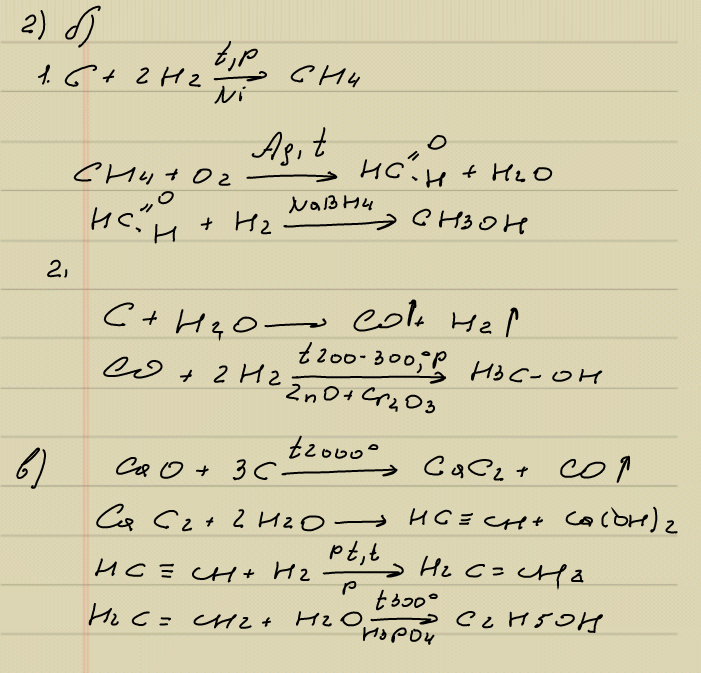 2) б)
1. C + 2H2 t,p→Ni CH4
CH4 + O2 Ag, t→ HC=O-H + H2O
HC=O-H + H2 NaBH4→ CH3OH
2.
C + H2O → CO↑ + H2↑
CO + 2H2 t200-300,°p→ZnO+Cr2O3 H3C-OH
в) CaO + 3C t2000°→ CaC2 + CO↑
CaC2 + 2H2O → HC≡CH + Ca(OH)2
HC≡CH + H2 pt,t→p H2C=CH2
H2C=CH2 + H2O t300°→H3PO4 C2H5OH